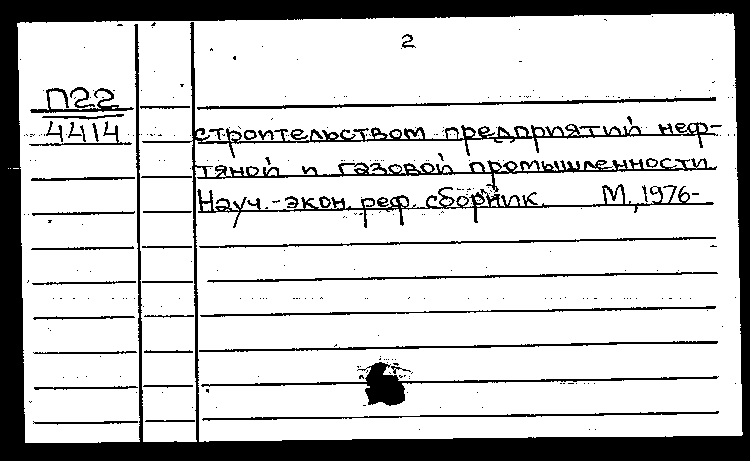 2
П22
4414
строительством предприятий неф-
тяной и газовой промышленности
Науч.-экон. реф. сборник. М., 1976-